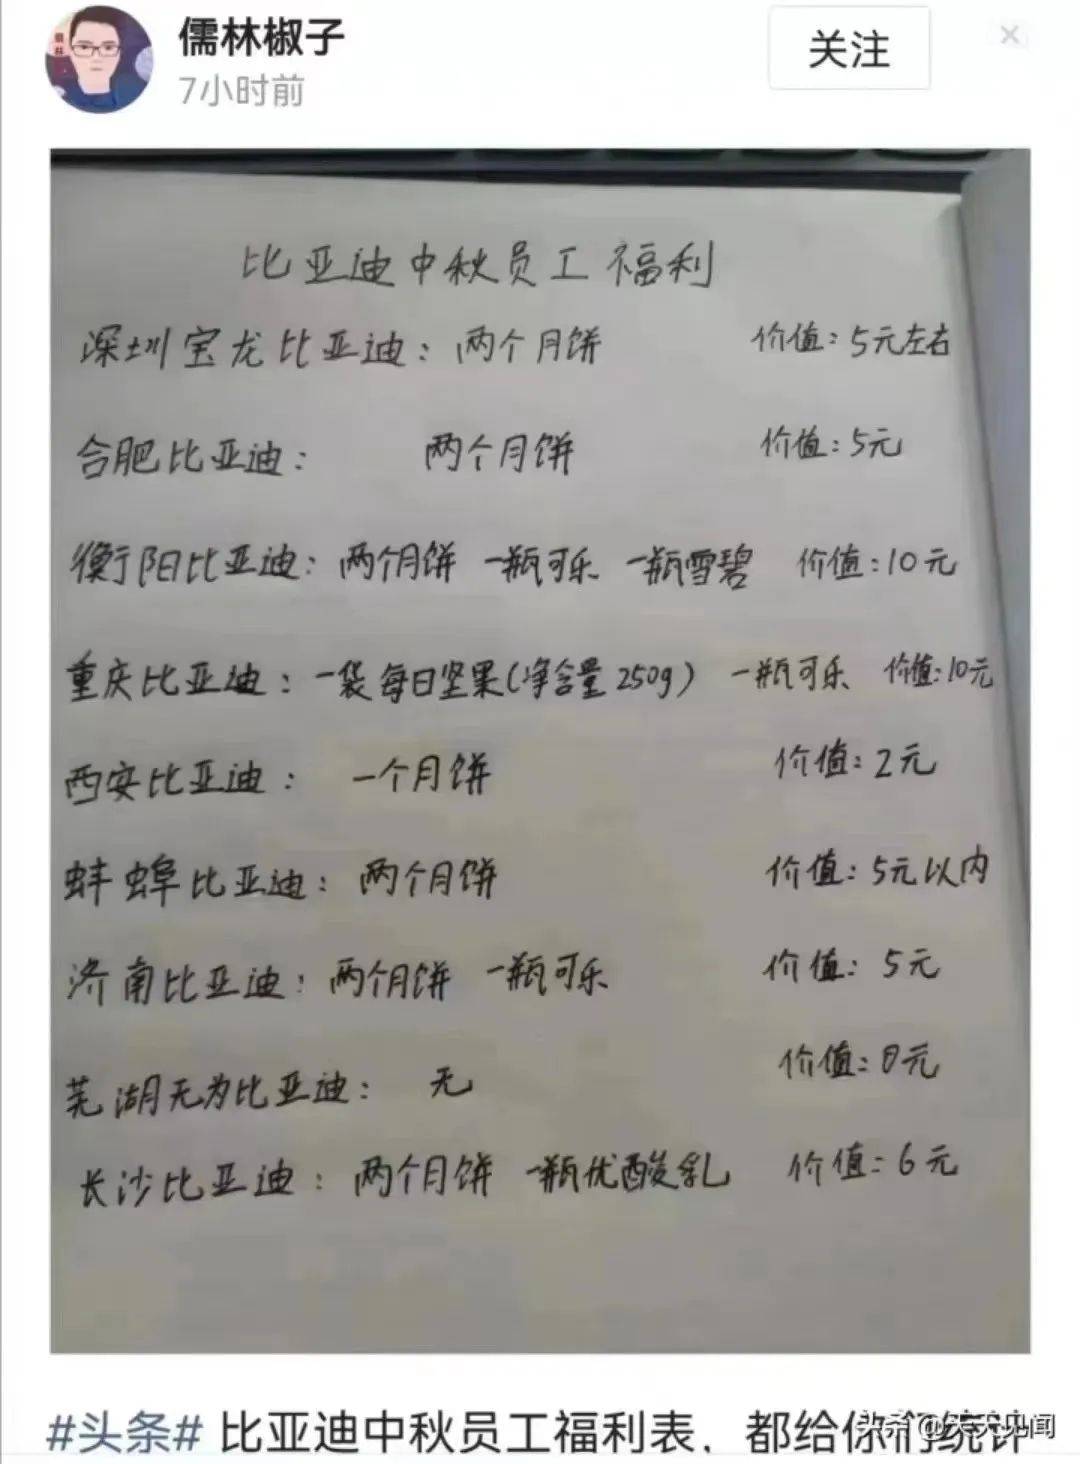 儒林椒子
关注
7小时前
比亚迪中秋员工福利
深圳宝龙比亚迪：两个月饼 价值：5元左右
合肥比亚迪： 两个月饼 价值：5元
衡阳比亚迪：两个月饼 一瓶可乐 一瓶雪碧 价值：10元
重庆比亚迪：一袋每日坚果(净含量250g) 一瓶可乐 价值：10元
西安比亚迪： 一个月饼 价值：2元
蚌蟑比亚迪：两个月饼 价值：5元以内
济南比亚迪：两个月饼 一瓶可乐 价值：5元
芜湖无为比亚迪： 无 价值：0元
长沙比亚迪：两个月饼 一瓶优酸乳 价值：6元
#头条# 比亚迪中秋员工福利表，都给你们统计
头条@天天见闻